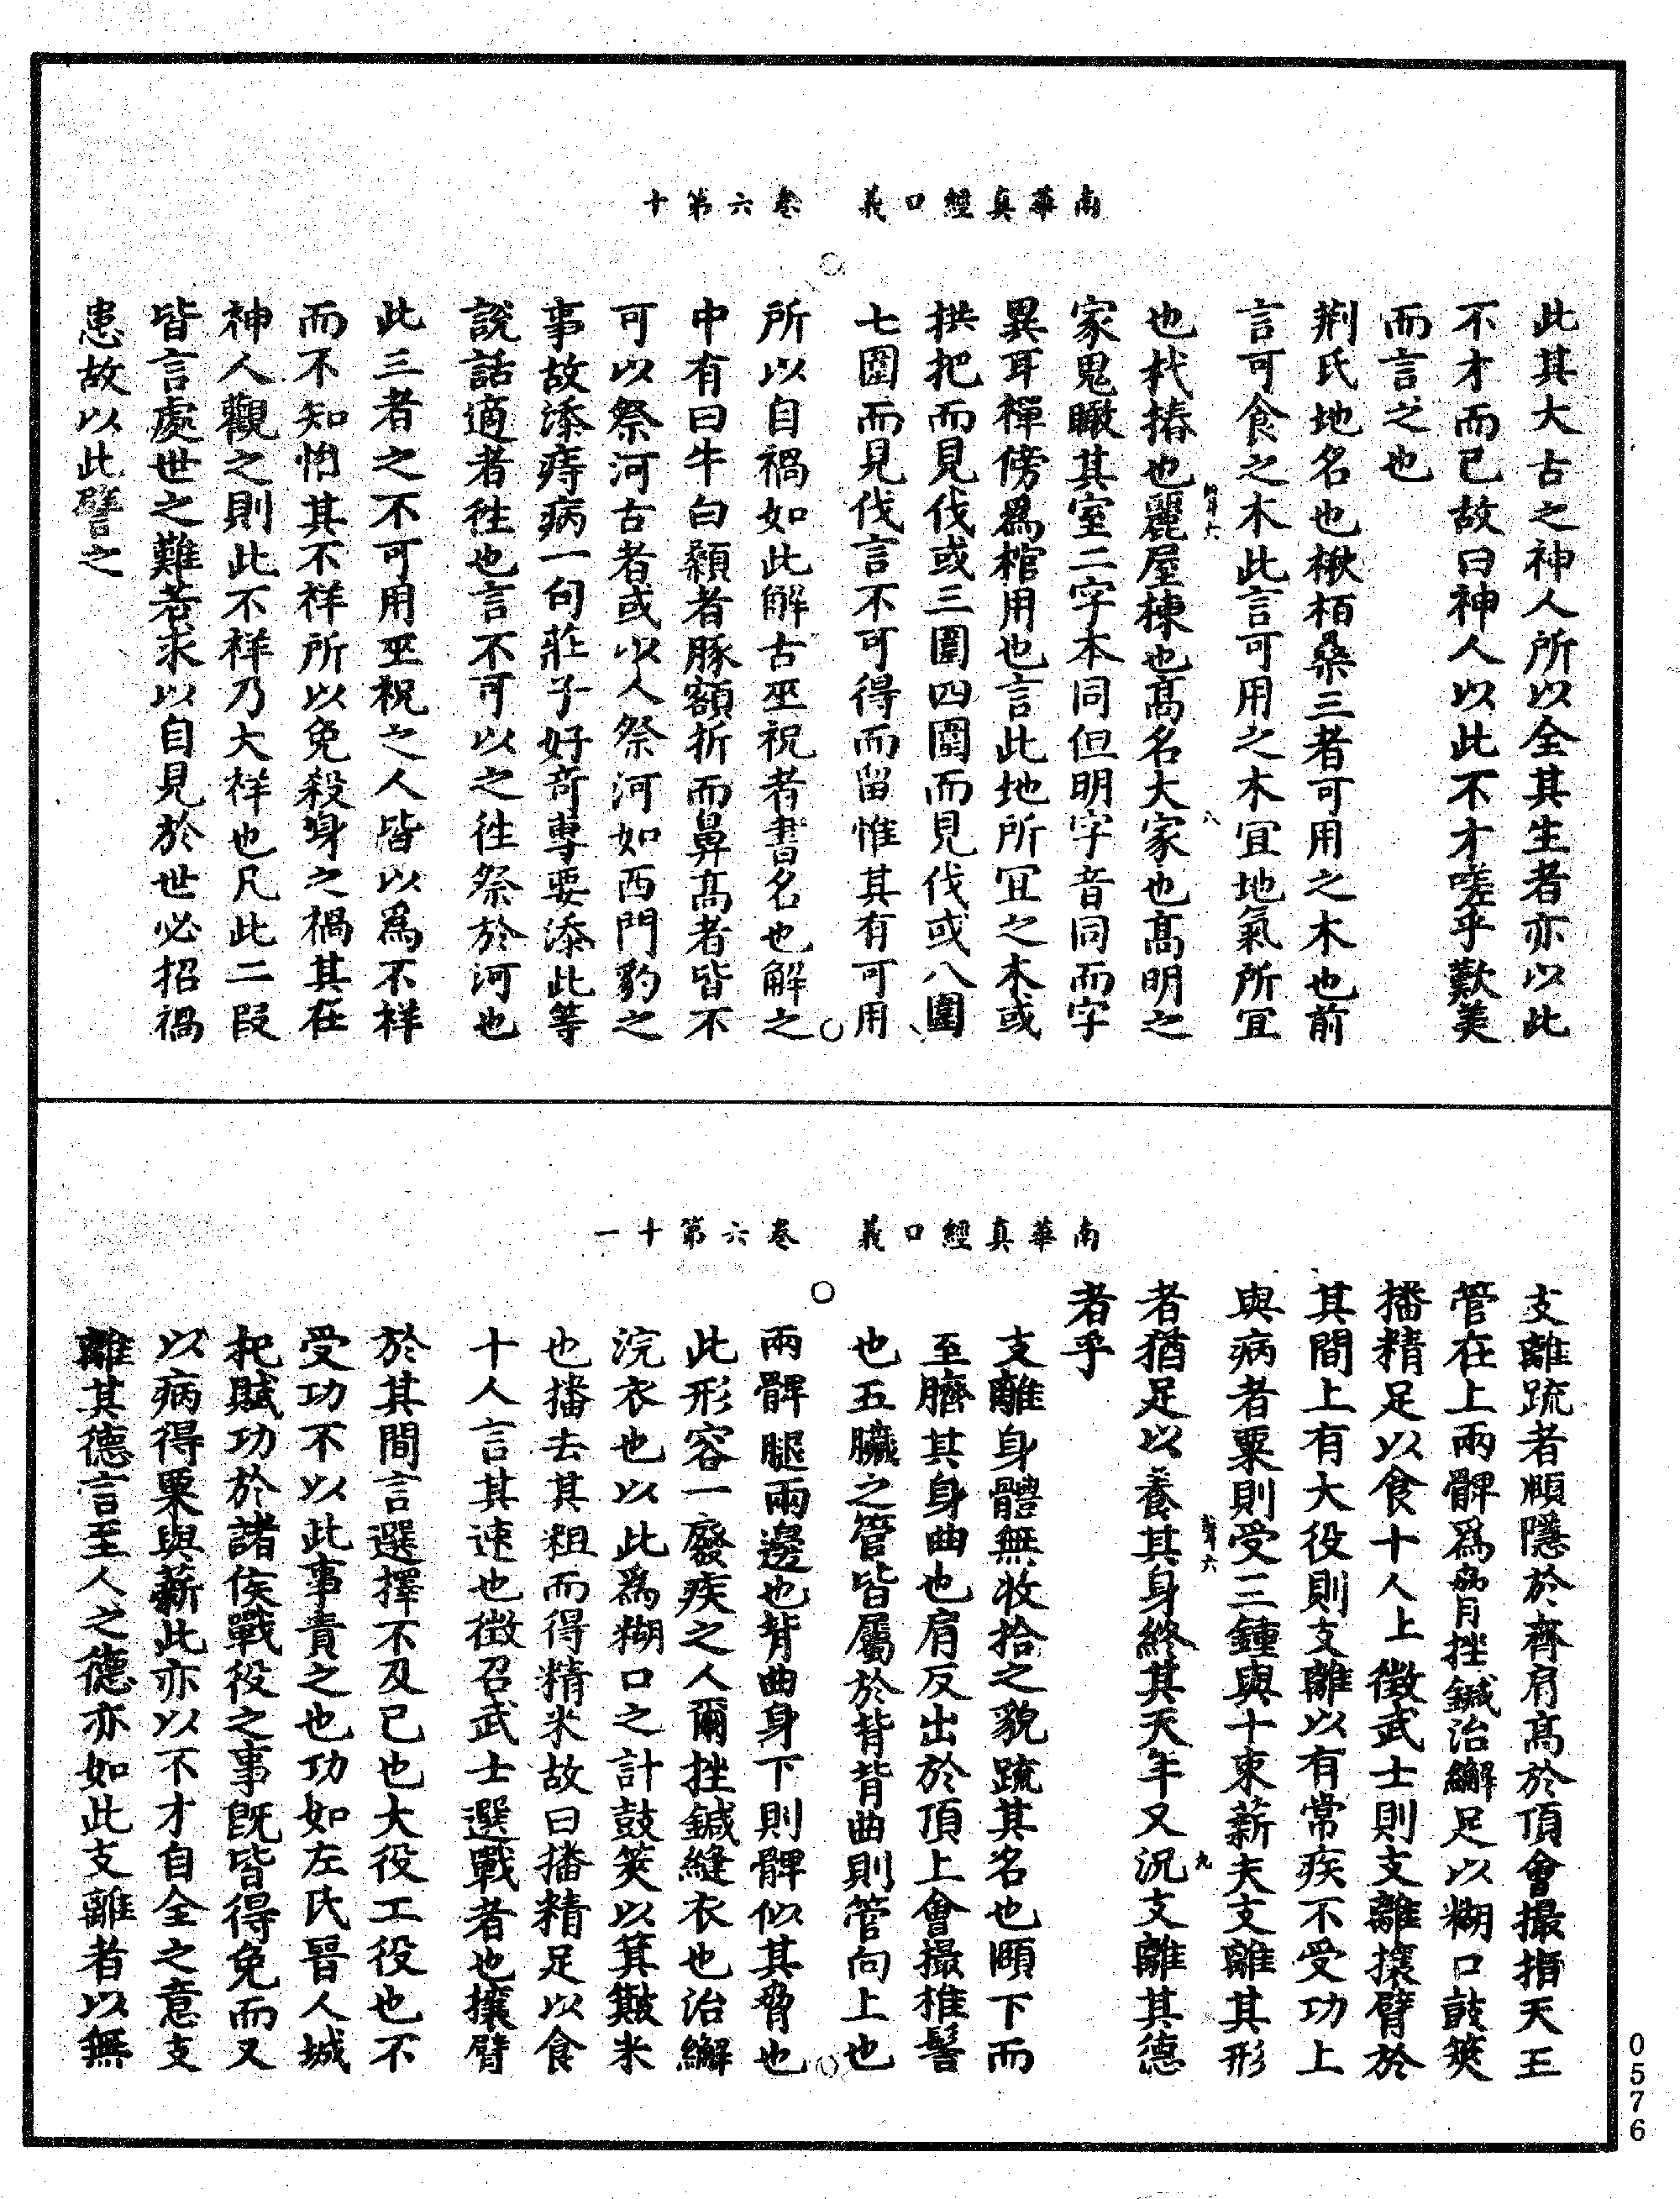 南華真經口義　卷六第十
此其大古之神人所以全其生者亦以此
不才而已故曰神人以此不才嗟乎歎美
而言之也
荆氏地名也楸栢桑三者可用之木也前
言可食之木此言可用之木宜地氣所宜
也杙摏也麗屋棟也髙名大家也髙明之
家鬼瞰其室二字本同但明字音同而字
異耳禪傍爲棺用也言此地所宜之木或
拱把而見伐或三圍四圍而見伐或八圍
七圍而見伐言不可得而留惟其有可用
所以自禍如此解古巫祝者書名也解之
中有曰牛白顙者豚額折而鼻髙者皆不
可以祭河古者或以人祭河如西門豹之
事故添痔病一句莊子好竒專要添此等
說話適者徃也言不可以之徃祭於河也
此三者之不可用巫祝之人皆以爲不祥
而不知惟其不祥所以免殺身之禍其在
神人觀之則此不祥乃大祥也凡此二段
皆言處世之難若求以自見於世必招禍
患故以此譬之
八
南華真經口義　卷六第十一
支離䟽者頤隱於齊肩髙於頂會撮指天五
管在上兩髀爲脅挫鍼治繲足以糊口鼓筴
播精足以食十人上徵武士則支離攘臂於
其間上有大役則支離以有常疾不受功上
與病者粟則受三鍾與十束薪夫支離其形
者猶足以養其身終其天年又況支離其德
者乎
支離身體無收拾之貌䟽其名也頤下而
至臍其身曲也肩反出於頂上會撮椎髻
也五臟之管皆屬於背背曲則管向上也
兩髀腿兩邊也背曲身下則髀似其脅也
此形容一廢疾之人爾挫鍼縫衣也治繲
浣衣也以此爲糊口之計鼓筴以箕簸米
也播去其粗而得精米故曰播精足以食
十人言其速也徵召武士選戰者也攘臂
於其間言選擇不及己也大役工役也不
受功不以此事責之也功如左氏晉人城
杞賦功於諸侯戰役之事旣皆得免而又
以病得粟與薪此亦以不才自全之意支
離其德言至人之德亦如此支離者以無
九
0576